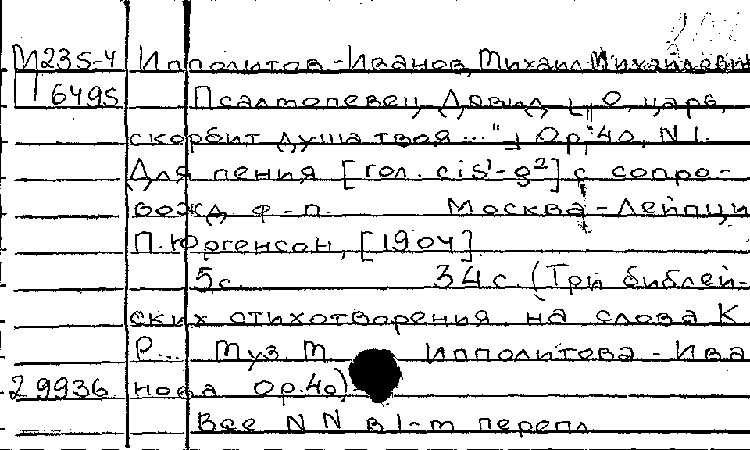 М235-4 Ипполитов-Иванов, Михаил Михайлович
П 6495 Псалмопевец Давид [„О, царь,
скорбит душа твоя..."] Ор. 40, N 1.
Для пения [гол. cis¹-g²] с сопро-
вожд. ф-п. Москва-Лейпциг
П. Юргенсон, [1904]
5с. 34 с. (Три библей-
ских стихотворения на слова К.
Р... Муз. М. Ипполитова-Ива
29936 нова Ор. 40)
Все NN в 1-м перепл.